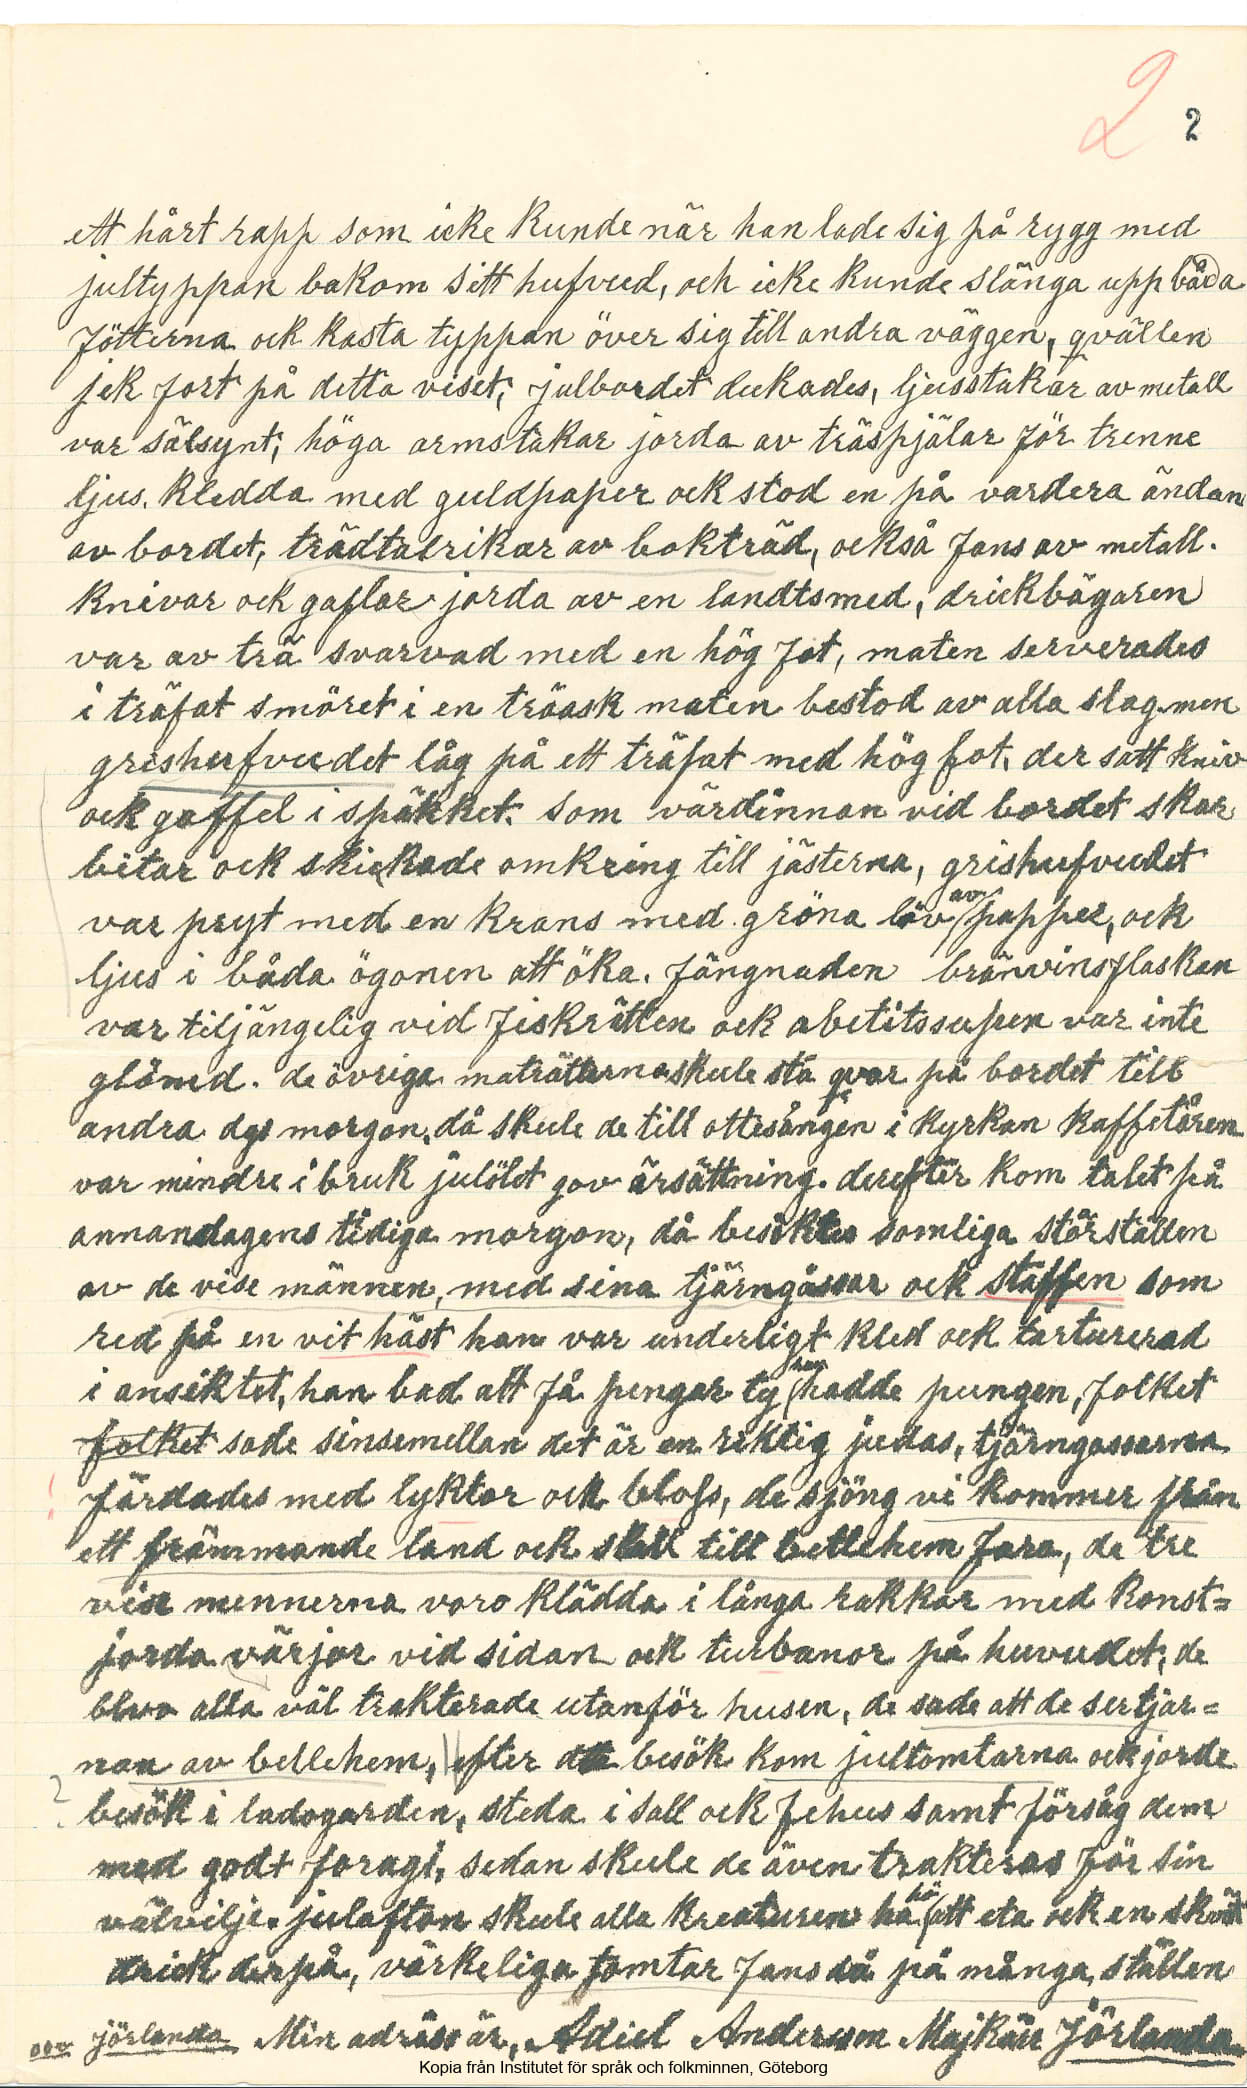 2
2
ett hårt rapp som icke kunde när han lade sig på rygg med
jultyppan bakom sitt hufvud, och icke kunde slänga upp båda
fötterna ock kasta typpan över sig till andra väggen, qvällen
jek fort på detta viset, julbordet dukades, ljusstakar av metall
var sälsynt, höga armstakar jorda av träspjälar för trenne
ljus. kledda med guldpaper ock stod en på vardera ändan
av bordet, trädtalrikar av bokträd, också fans av metall.
knivar ock gaflar jorda av en landtsmed, drickbägaren
var av trä svarvad med en hög fot, maten serverades
i träfat smöret i en träask maten bestod av alla slag men
grishufvudet låg på ett träfat med hög fot, der satt kniv
ock gaffel i späkket. som värdinnan vid bordet skar
bitar ock skickade omkring till jästerna, grishufvudet
var pryt med en krans med gröna löv av papper, ock
ljus i båda ögonen att öka. fängnaden bränvinsflaskan
var tiljängelig vid fiskrätten ock abetitssupen var inte
glömd. de övriga maträtterna skule stå qvar på bordet till
andra dgs morgon, då skule de till ottesången i kyrkan kaffetåren
var mindre i bruk julölet gav ärsättning. derefter kom talet på
annandagens tidiga morgon, då besöktes somliga större ställen
av de vise männen, med sina tjärngåssar ock staffen som
red på en vit häst han var underligt kled ock tarturerad
i ansiktet, han bad att få pengar ty han hadde pungen, folket
folket sade sinsemellan det är en riktig judas, tjärngossarna
färdades med lyktor ock blofs, de sjöng vi kommer från
ett främmande land ock skall till betlehem fara, de tre
vise mennerna voro klädda i långa rakkar med konst=
jorda värjor vid sidan ock turbanor på huvudet, de
blvo alla väl trakterade utanför husen, de sade att de ser tjär=
nan av betlehem, efter besök kom jultomtarna ock jorde
besök i ladogarden, steda i sall ock fehus samt försåg dem
med godt foragi, sedan skule de även trakteras för sin
välvilje. julafton skule alla kreaturen ha hö att eta ock en skvät
drick derpå, värkeliga tomtar fans då på många ställen
Jörlanda Min adräss är, Adiel Anderson Majkärr Jörlanda
Kopia från Institutet för språk och folkminnen, Göteborg